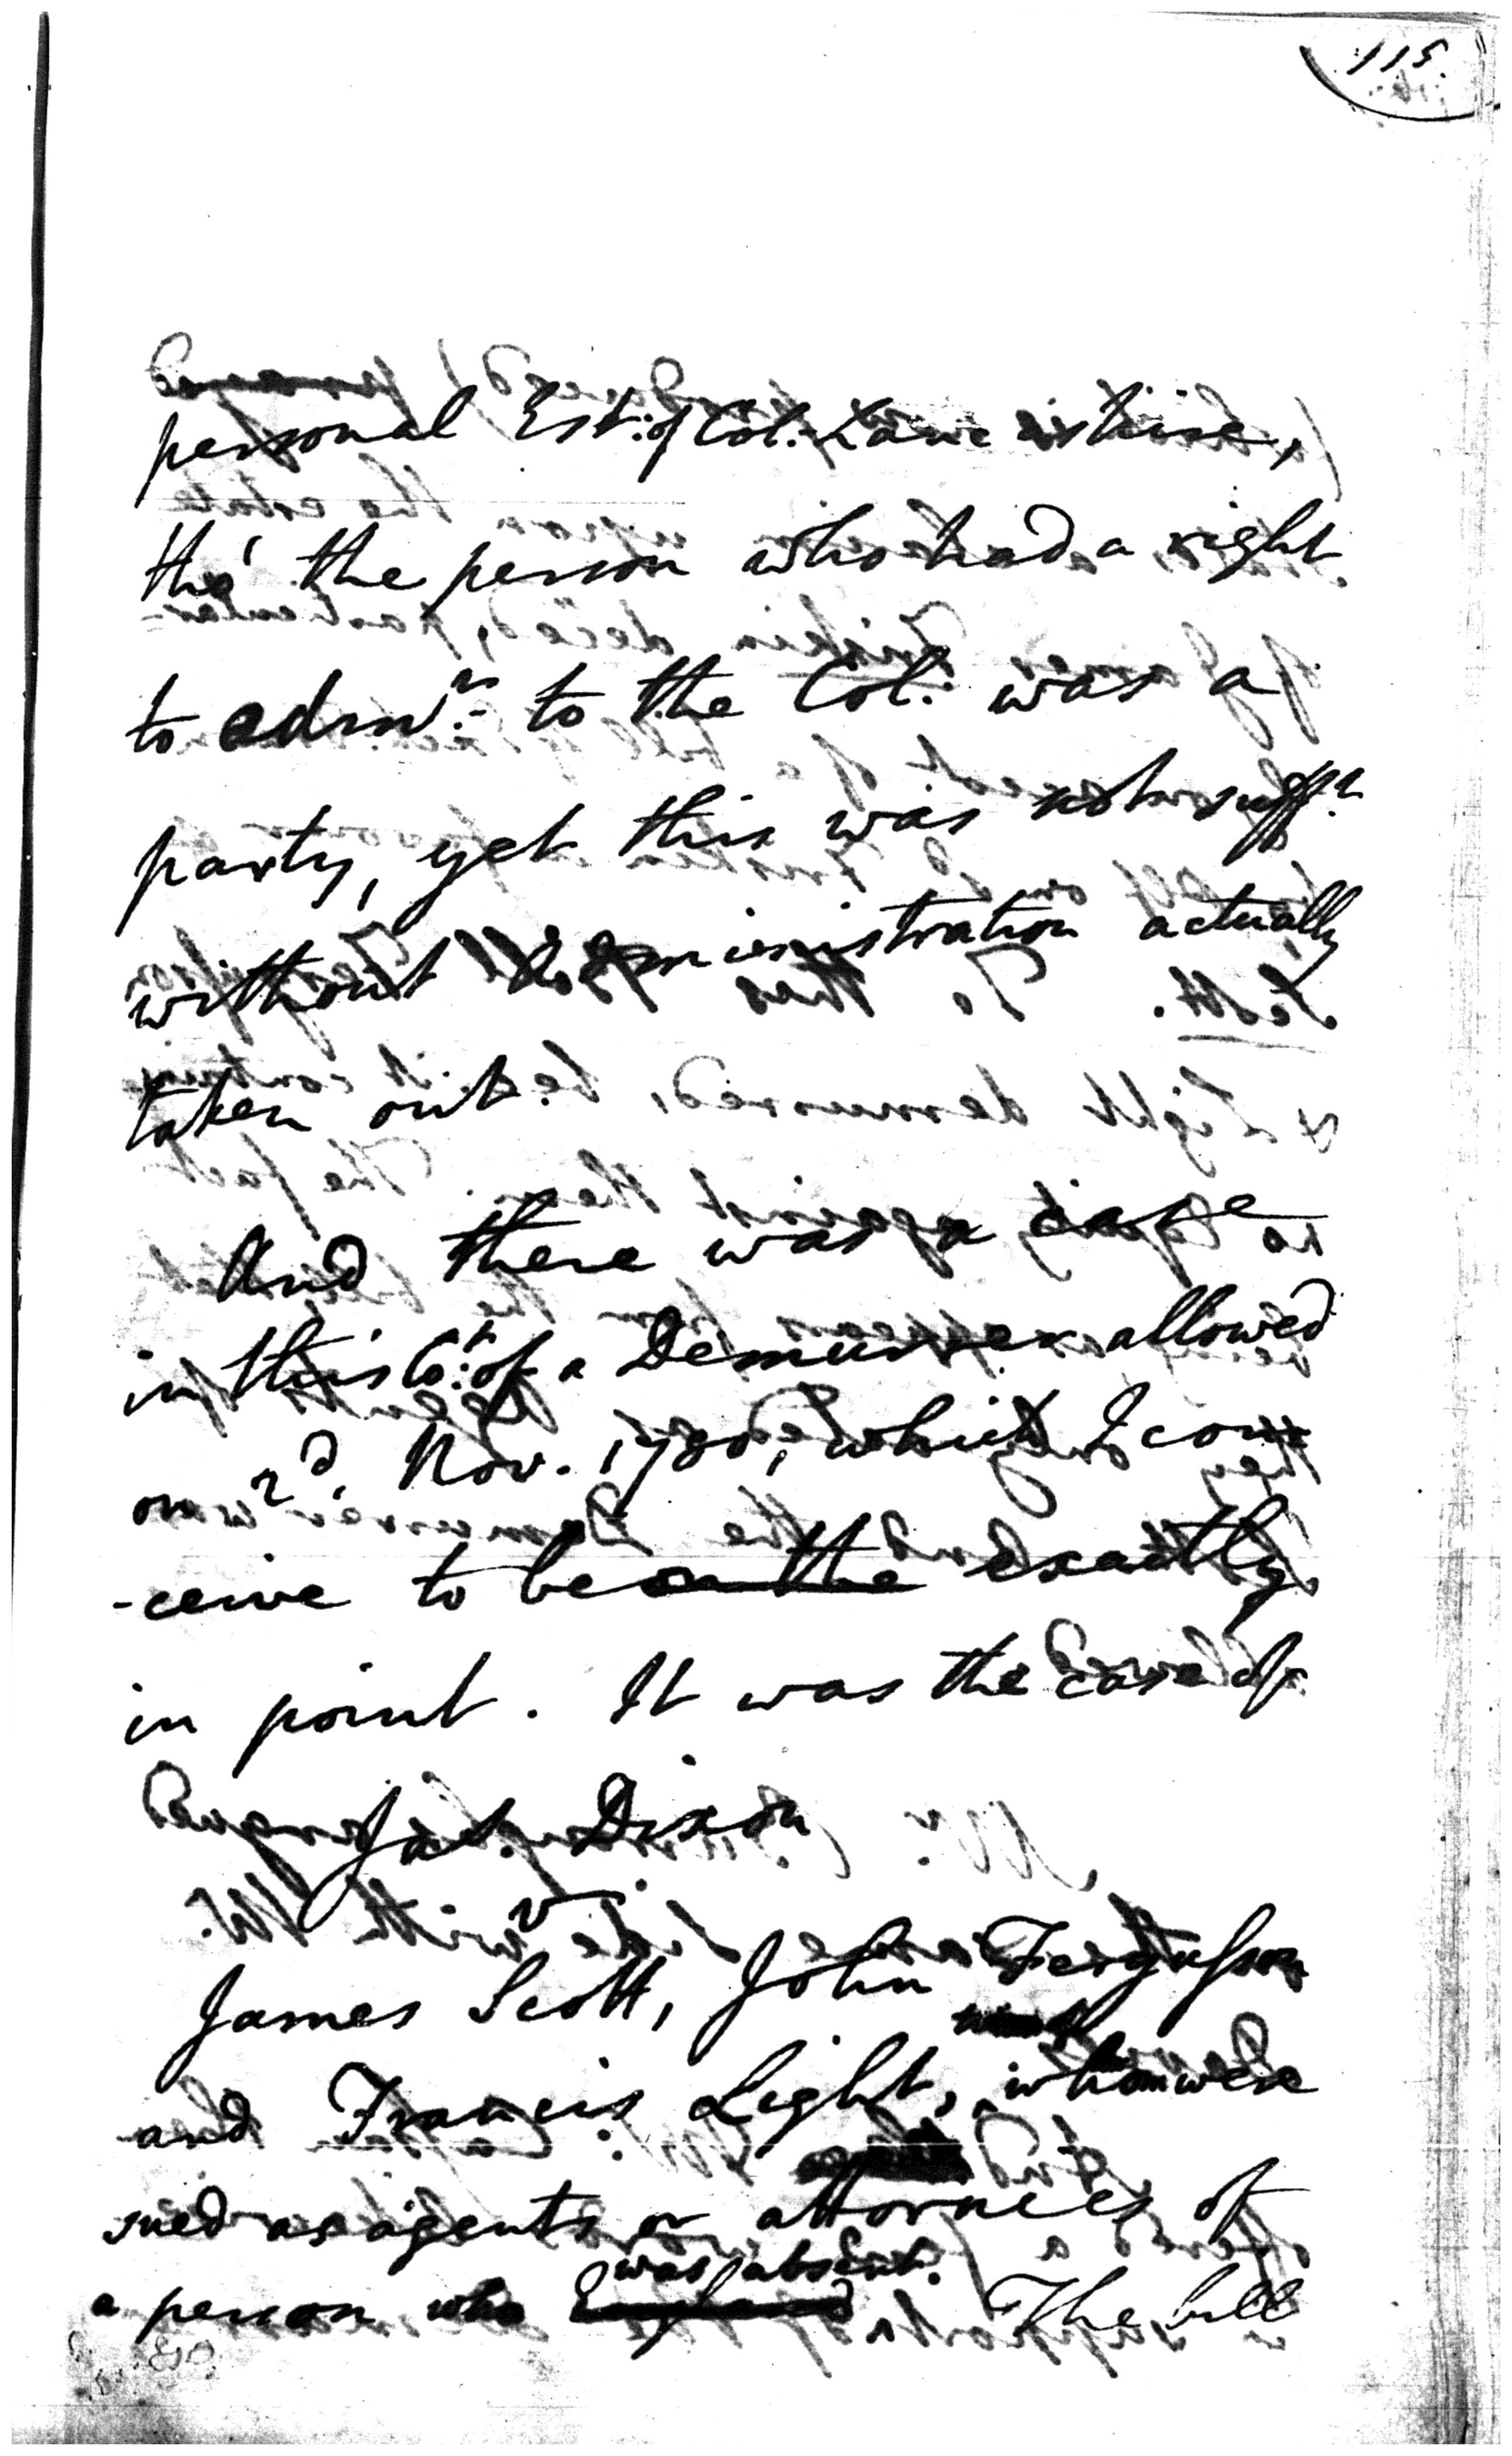 115
personal Est: of Col. Lane
tho' the person who had a right
to admr. to the Col. was a
party, yet this was not sufft.
without administration actually
taken out.
And there was a case
in this Ct: of a Demurrer allowed
on 2d. Nov. 1780, which I con
-ceive to be exactly
in point. It was the case of
Jas. Dixon
v.
James Scott, John Fergusson
and Francis Light, who were
sued as agents or attornees of
was absent.
a person who England The bill